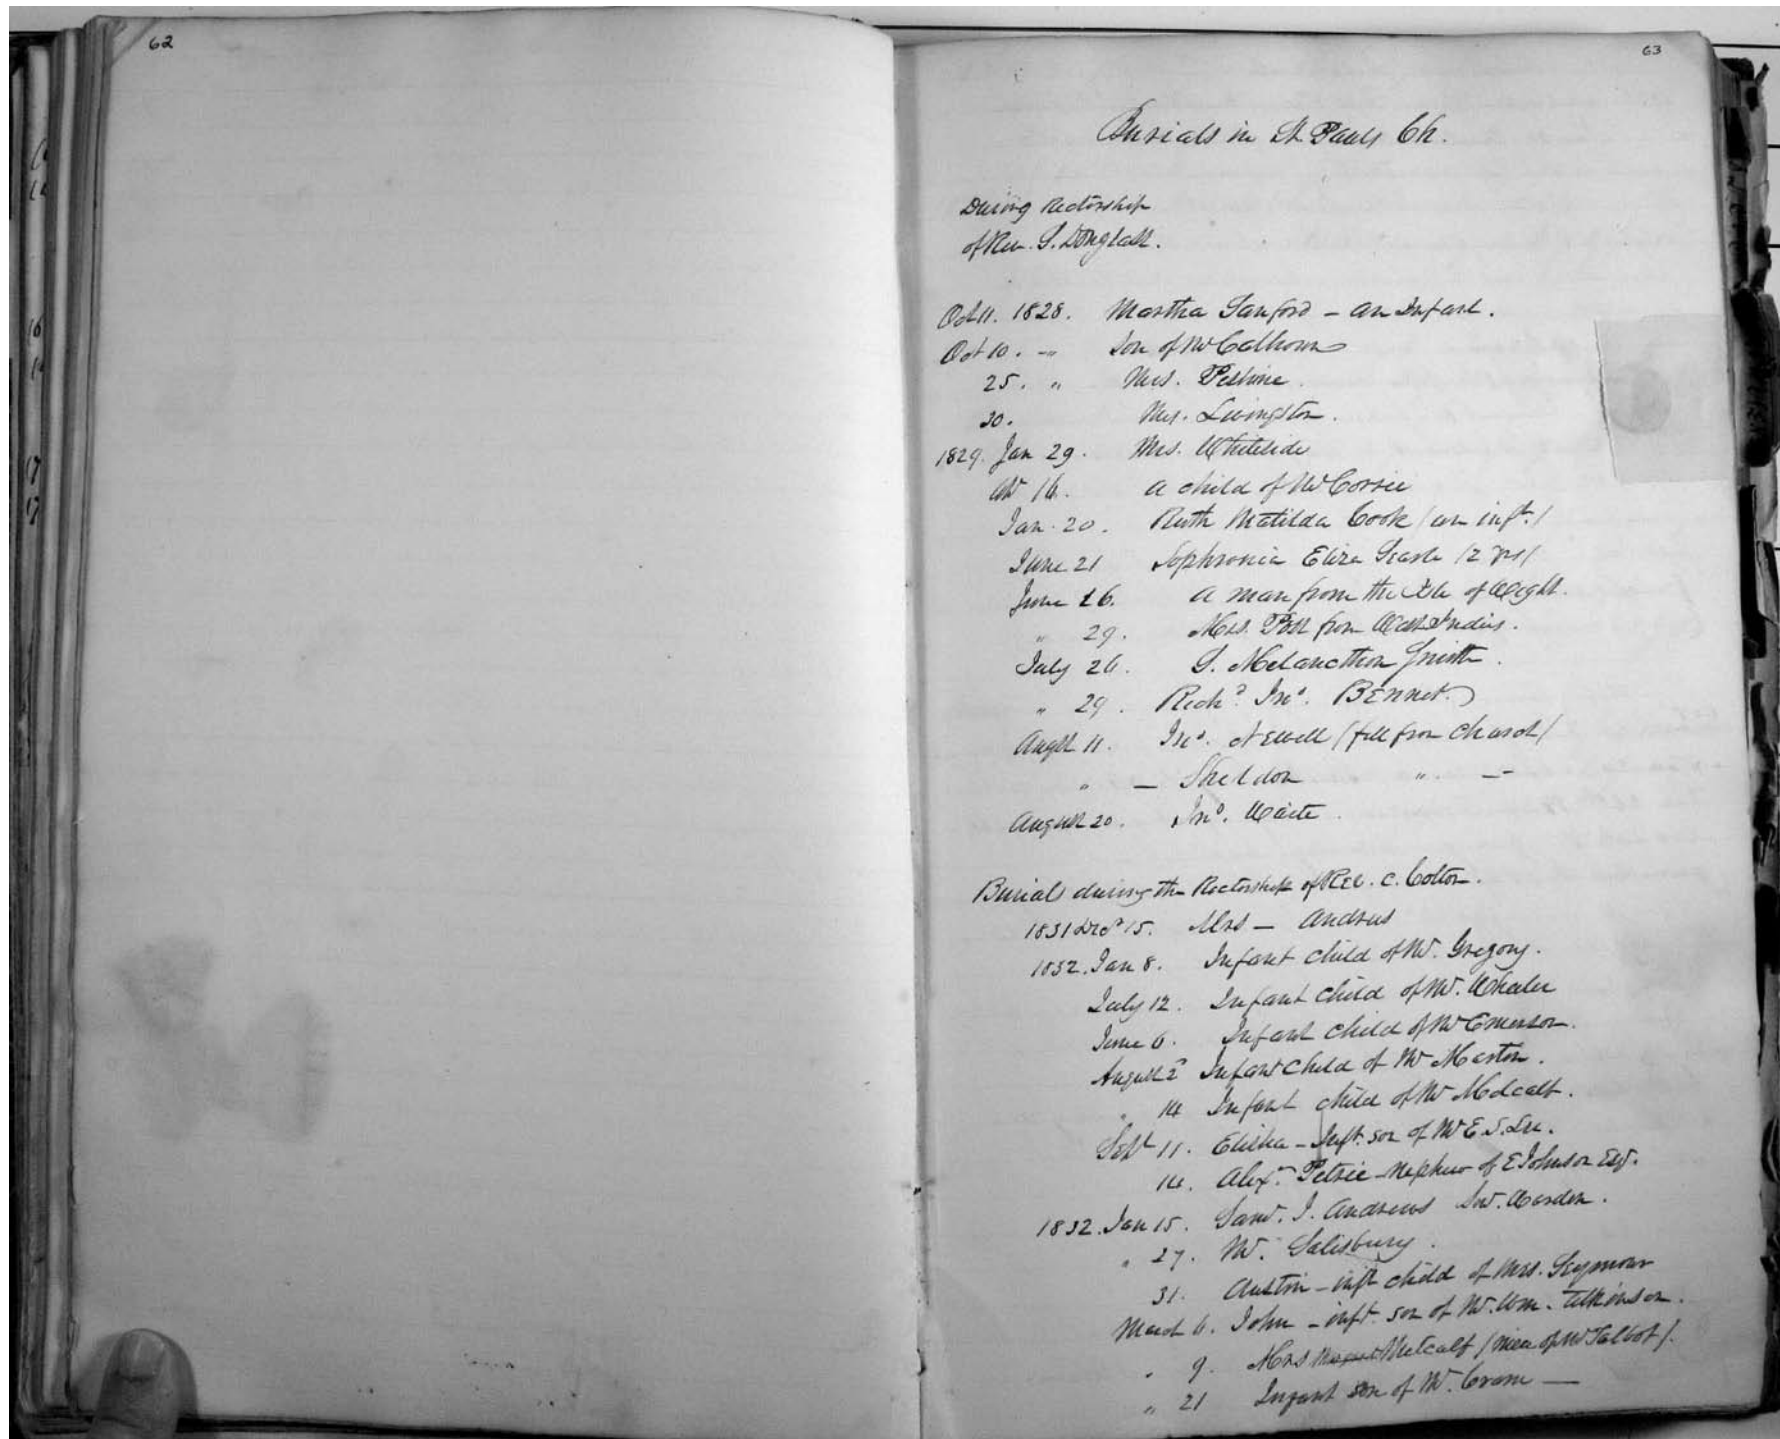 62
63
Burials in St Pauls Ch.
During Rectorship
of Rev. S. Douglass.
Oct 11. 1828. Martha Sanford - an Infant.
Oct 10. - " Son of Mr Calhoun
25. " Mrs. Peshine.
30. Mrs. Livingston.
1829. Jan 29. Mrs. Whiteside
16. a child of Mr Corsie
Jan. 20. Ruth Matilda Cook / an inft. /
June 21 Sophronia Eliza / 2 yrs /
June 26. a man from the Isle of Wight.
" 29. Mrs. Post from West Indies.
July 26. S. Melancthon Smith.
" 29. Richd. Jno. Bennet.
Augst 11. Jno. Newell / fell from church /
" — Sheldon " —
August 20. Jno. Waite.
Burials during the Rectorship of Rev. C. Colton.
1831 Decr 15. Mrs — Andrus
1832. Jan 8. Infant child of Mr. Gregory.
July 12. Infant child of Mr. Wheeler
June 6. Infant child of Mr Emerson.
August 2d Infant Child of Mr Marton.
" 14 Infant child of Mr Medcalf.
Sept 11. Elisha - Inft. son of Mr E. S. Lee.
14. Alexr. Petrie - nephew of E Johnson Esq.
1832. Jan 15. Saml. J. Andrews Snr. Warden.
" 27. Mr. Salisbury.
31. Austin - inft child of Mrs. Seymour
March 6. John - inft. son of Mr. Wm. Atkinson.
" 9. Mrs Metcalf / niece of Mr Talbot /.
" 21 Infant son of Mr. Crane —